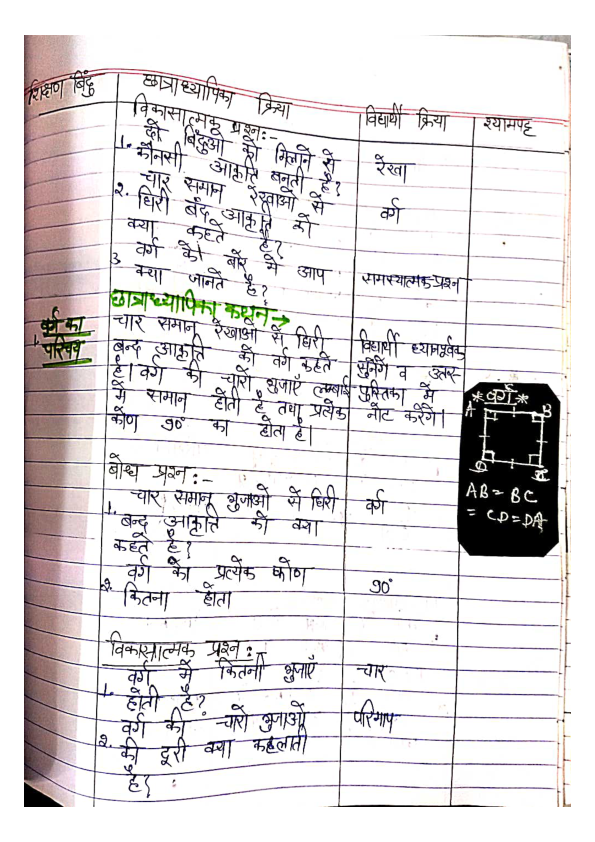 शिक्षण बिंदु
छात्राध्यापिका क्रिया
विद्यार्थी क्रिया
श्यामपट्ट
विकासात्मक प्रश्न:-
1. दो बिंदुओ को मिलाने से
कौनसी आकृति बनती है?
रेखा
2. चार समान रेखाओं से
घिरी बंद आकृति को
क्या कहते है?
वर्ग
3. वर्ग के बारे में आप
क्या जानते है?
समस्यात्मक प्रश्न
छात्राध्यापिका कथन →
वर्ग का
परिचय
चार समान रेखाओं से घिरी
बन्द आकृति को वर्ग कहते
है। वर्ग की चारों भुजाएँ लम्बाई
में समान होती है तथा प्रत्येक
कोण 90° का होता है।
विद्यार्थी ध्यानपूर्वक
सुनेंगे व उत्तर-
पुस्तिका में
नोट करेंगे।
* वर्ग *
A B
D C
AB = BC
= CD = DA
बोध प्रश्न:-
1. चार समान भुजाओं से घिरी
बन्द आकृति को क्या
कहते है?
वर्ग
2. वर्ग का प्रत्येक कोण
कितना होता
90°
विकासात्मक प्रश्न:-
1. वर्ग में कितनी भुजाएँ
होती है?
चार
2. वर्ग की चारों भुजाओं
की दूरी क्या कहलाती
है?
परिमाप